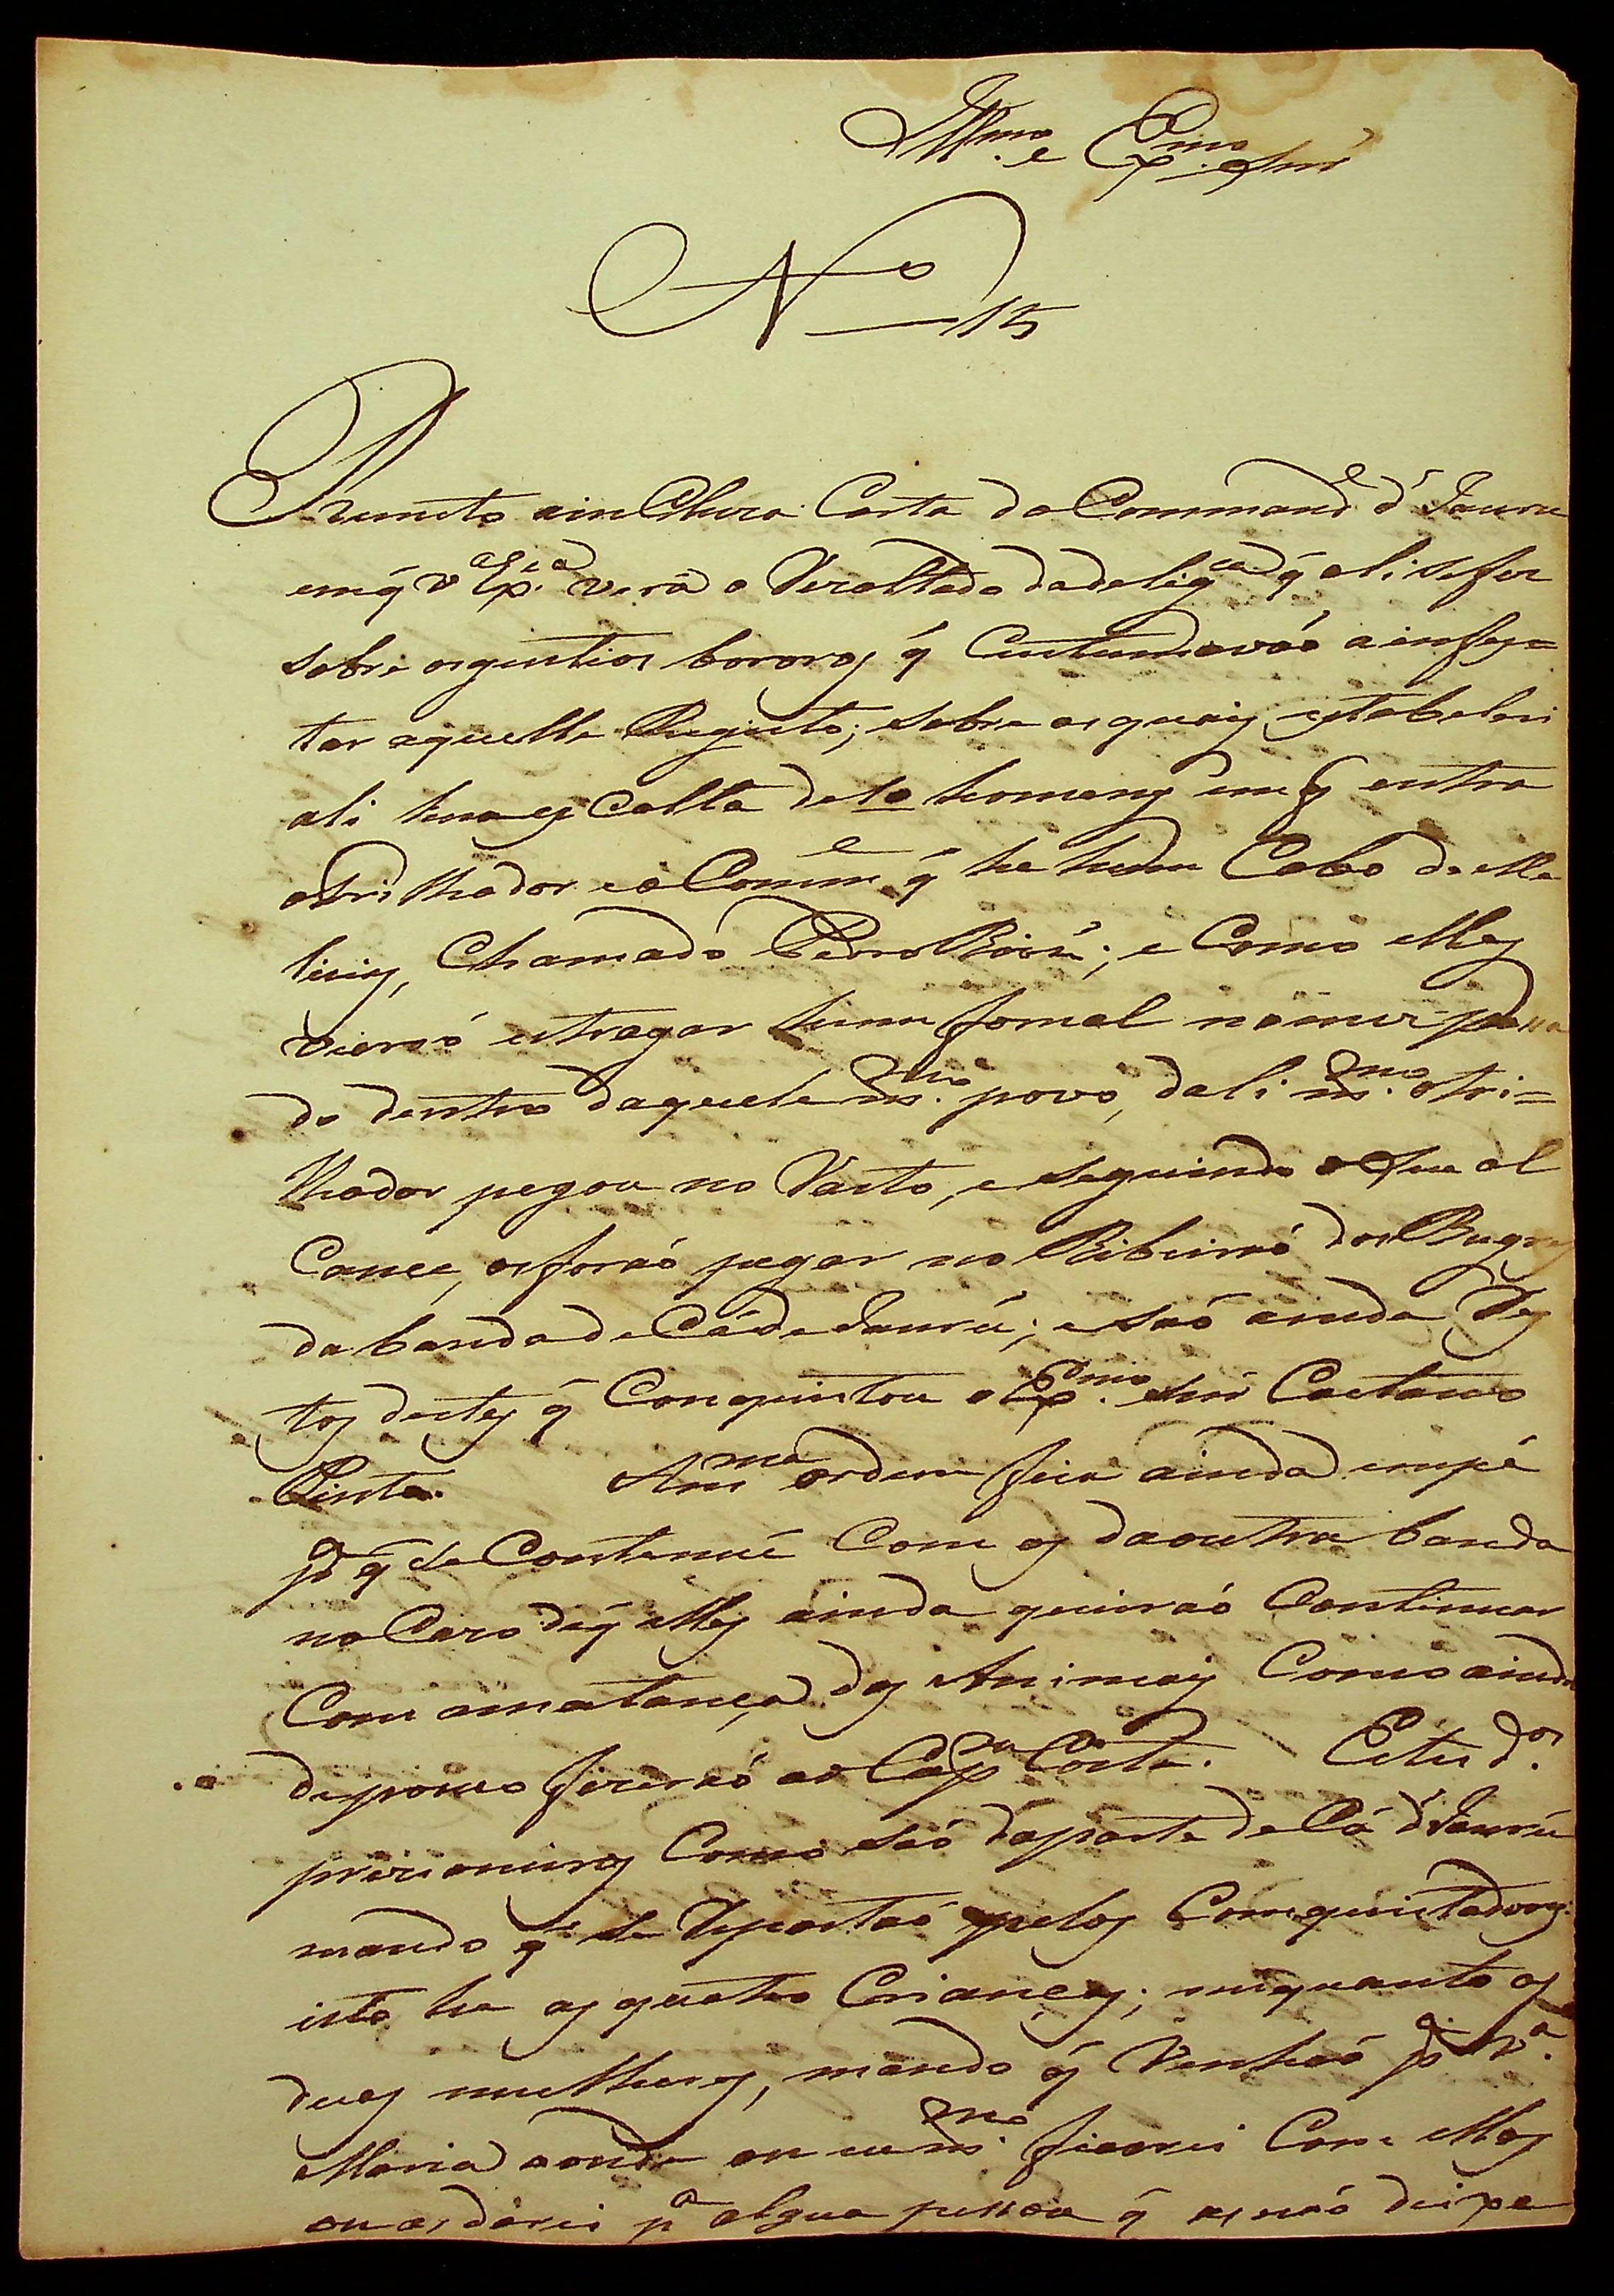 Illmo. e Exmo. Snr
No 15
Remeto a incluza Carta do Commande d' Jauru
em q̃ V Exca. verá o Rezaltado da delig.ca q̃ ali se fez
sobre os gentios bororos q̃ Custumavaó a infes=
tar aquelle Registo; sobre os quais estabeleci
ali hua esColta de 10 homens em q̃ entra
otrilhador e o Comme q̃ he hum Cabo de Me
licias, Chamado Pedro; e Como elles
vieraó estragar hum no mez passa
do dentro daquele mmo. povo, dali mmo. o tri=
lhador pegou no Rasto, e seguindo o seu al
Cance, os foraó pegar no Ribeiraó dos Bugres
da banda de Cá de Jaurú; e saó ainda Res
tos destes q̃ Conquistou o Exmo. Snr Caetano
Pinto. A mma ordem fica ainda em pé
pa q̃ se Contenué Com os da outra banda
no Cazo de q̃ elles ainda queiraó Continuar
Com a matança dos Animais Como ainda
de pouco fizeraó ao Capm Costa. Estes dos.
prezioneiros Como saó da parte de Cá d' Jaurú
mando q̃ se Repartaó pelos Comquistadores:
isto he as quatro Crianças; em quanto as
duas mulheres, mando q̃ Venhaó pa Va.
Maria aonde ou eu mmo. ficarei Com ellas
ou as darei pa algua pessoa q̃ as naó deixe